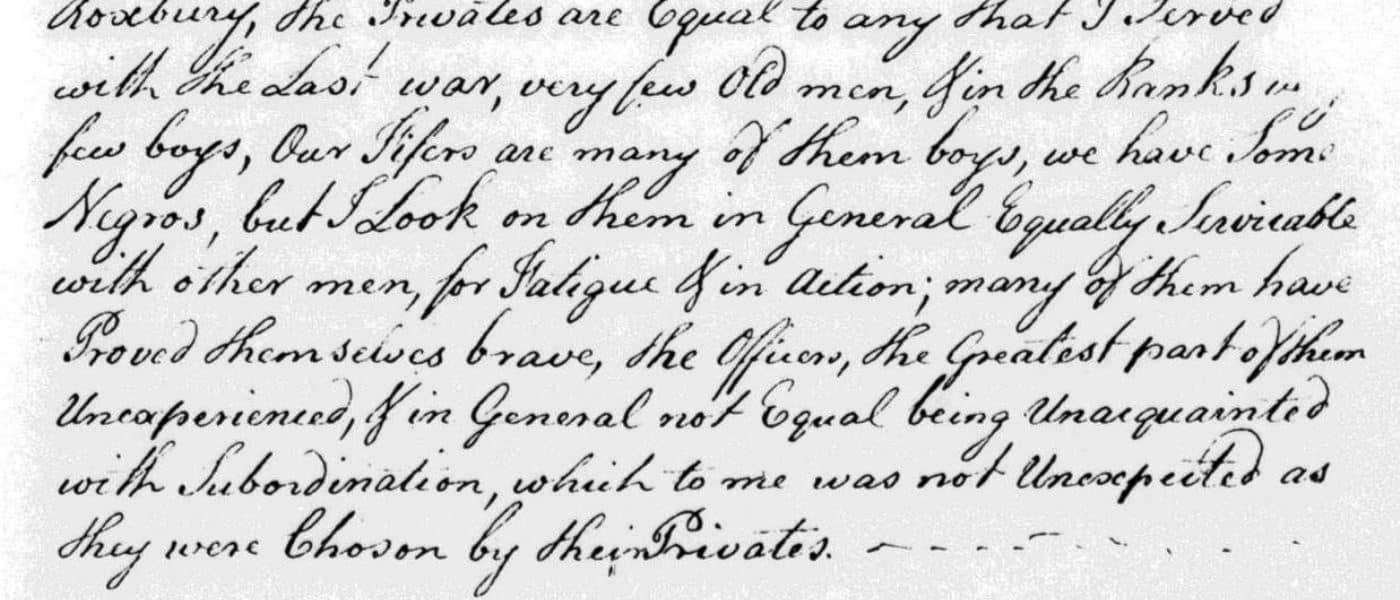 Roxbury, the Privates are Equal to any that I Served
with the Last war, very few Old men, & in the Ranks
few boys, Our Fifers are many of them boys, we have Some
Negros, but I Look on them in General Equally Servicable
with other men, for Fatigue & in Action; many of them have
Proved themselves brave, the Officers, the Greatest part of them
Unexperienced, & in General not Equal being Unacquainted
with Subordination, which to me was not Unexpected as
they were Choson by their Privates.